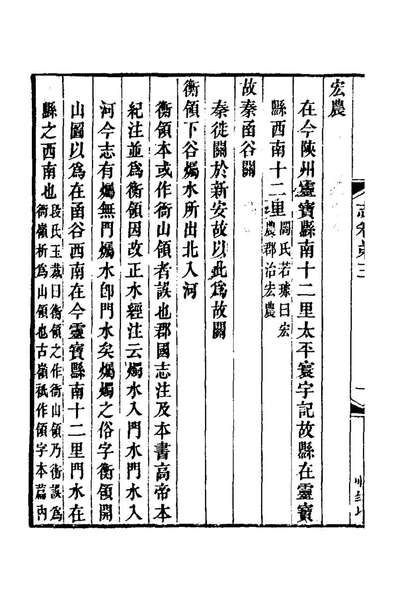 宏農
在今陝州靈寶縣南十二里太平寰宇記故縣在靈寶
縣西南十二里閻氏若璩曰宏
農郡治宏農
故秦函谷關
秦徙關於新安故以此爲故關
衡領下谷爥水所出北入河
衡領本或作衙山領者誤也郡國志注及本書高帝本
紀注並爲衡領因改正水經注云爥水入門水門水入
河今志有爥無門爥水卽門水矣爥燭之俗字衡領開
山圖以爲在函谷西南在今靈寶縣南十二里門水在
縣之西南也段氏玉裁曰衡領之作衙山領乃衡誤爲
衙嶺析爲山領也古嶺祇作領字本篇內
志考弟三
一